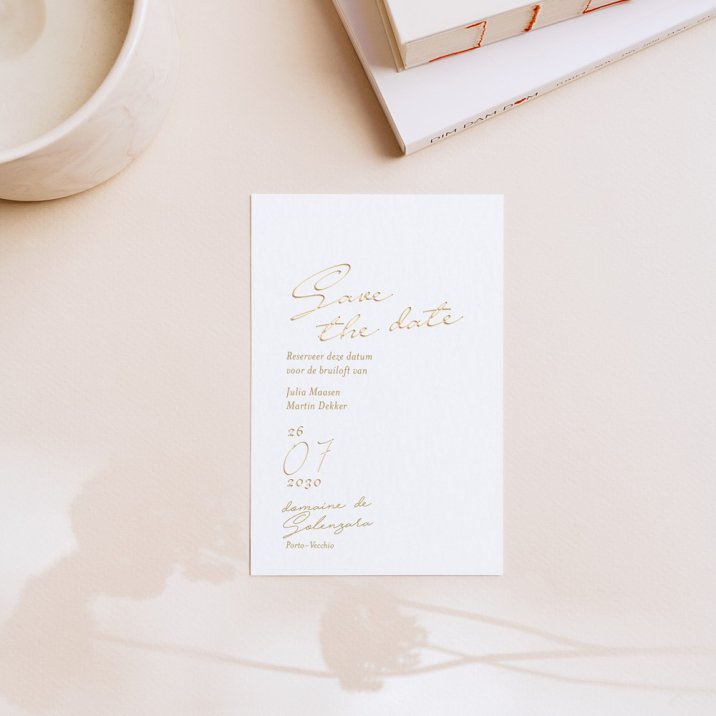 DIM DAM DOM
Save
the date
Reserveer deze datum
voor de bruiloft van
Julia Maasen
Martin Dekker
26
07
2030
domaine de
Solenzara
Porto-Vecchio